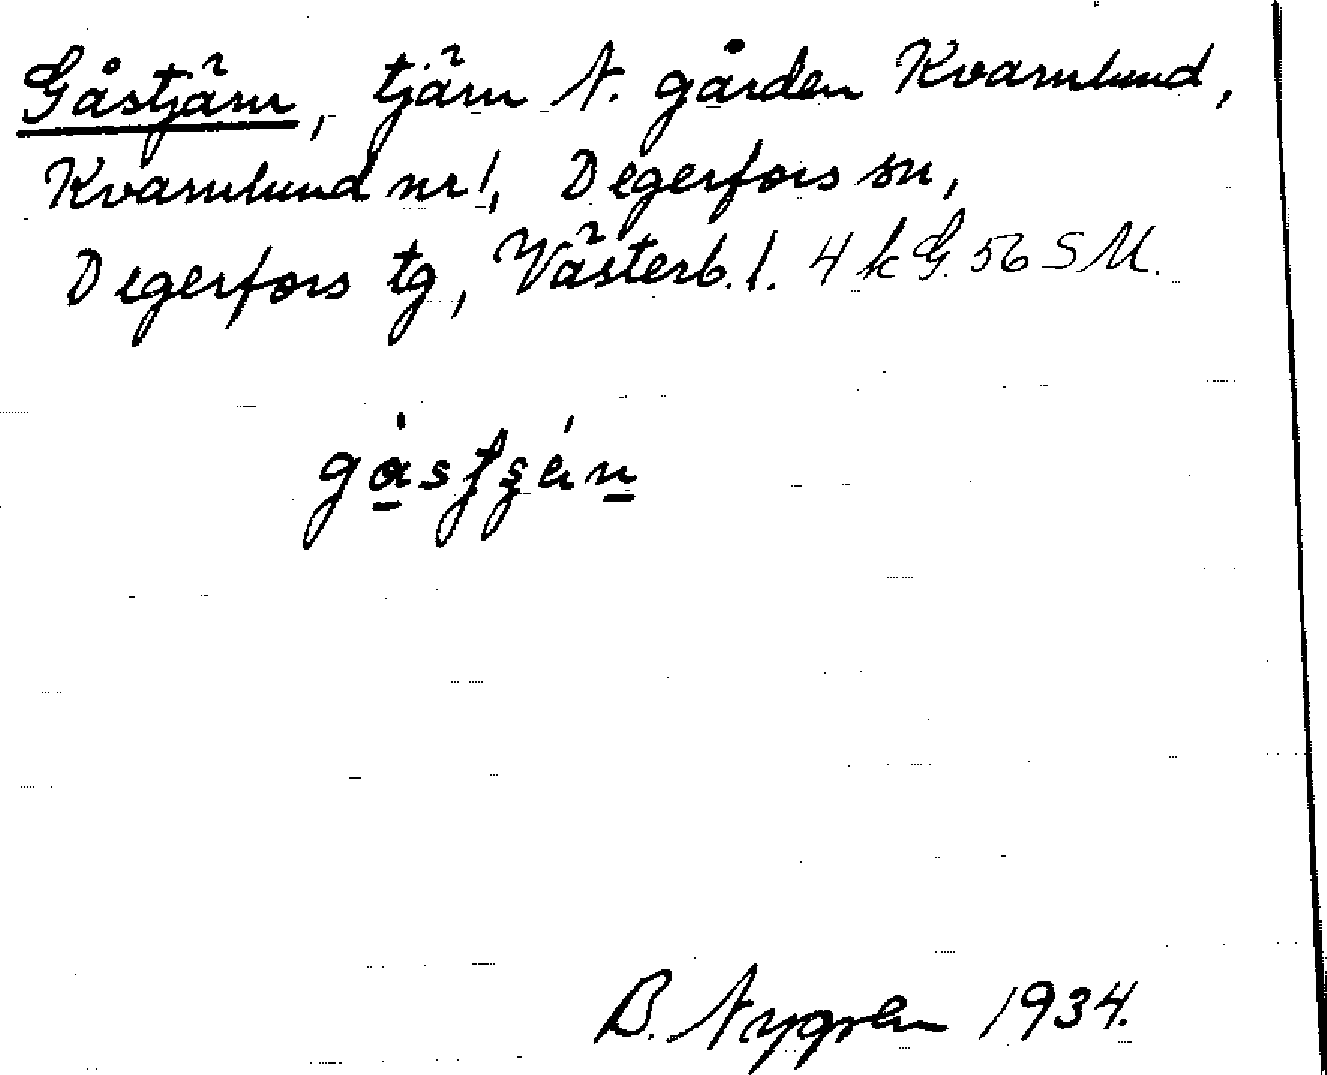 Gåstjärn, tjärn N. gården Kvarnlund,
Kvarnlund nr 1, Degerfors sn,
Degerfors tg, Västerb. l. 4 k G. 56 SM.
B. Nygren 1934.